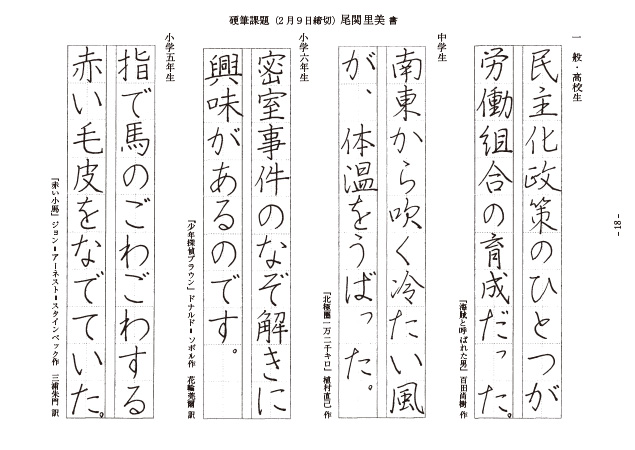 硬筆課題（２月９日締切）尾関里美 書
一般・高校生
民主化政策のひとつが
労働組合の育成だった。
『海賊と呼ばれた男』百田尚樹 作
中学生
南東から吹く冷たい風
が、体温をうばった。
『北極圏一万二千キロ』植村直己 作
小学六年生
密室事件のなぞ解きに
興味があるのです。
『少年探偵ブラウン』ドナルド＝ソボル作 花輪莞爾 訳
小学五年生
指で馬のごわごわする
赤い毛皮をなでていた。
『赤い小馬』ジョン＝アーネスト＝スタインベック作 三浦朱門 訳
- 18 -